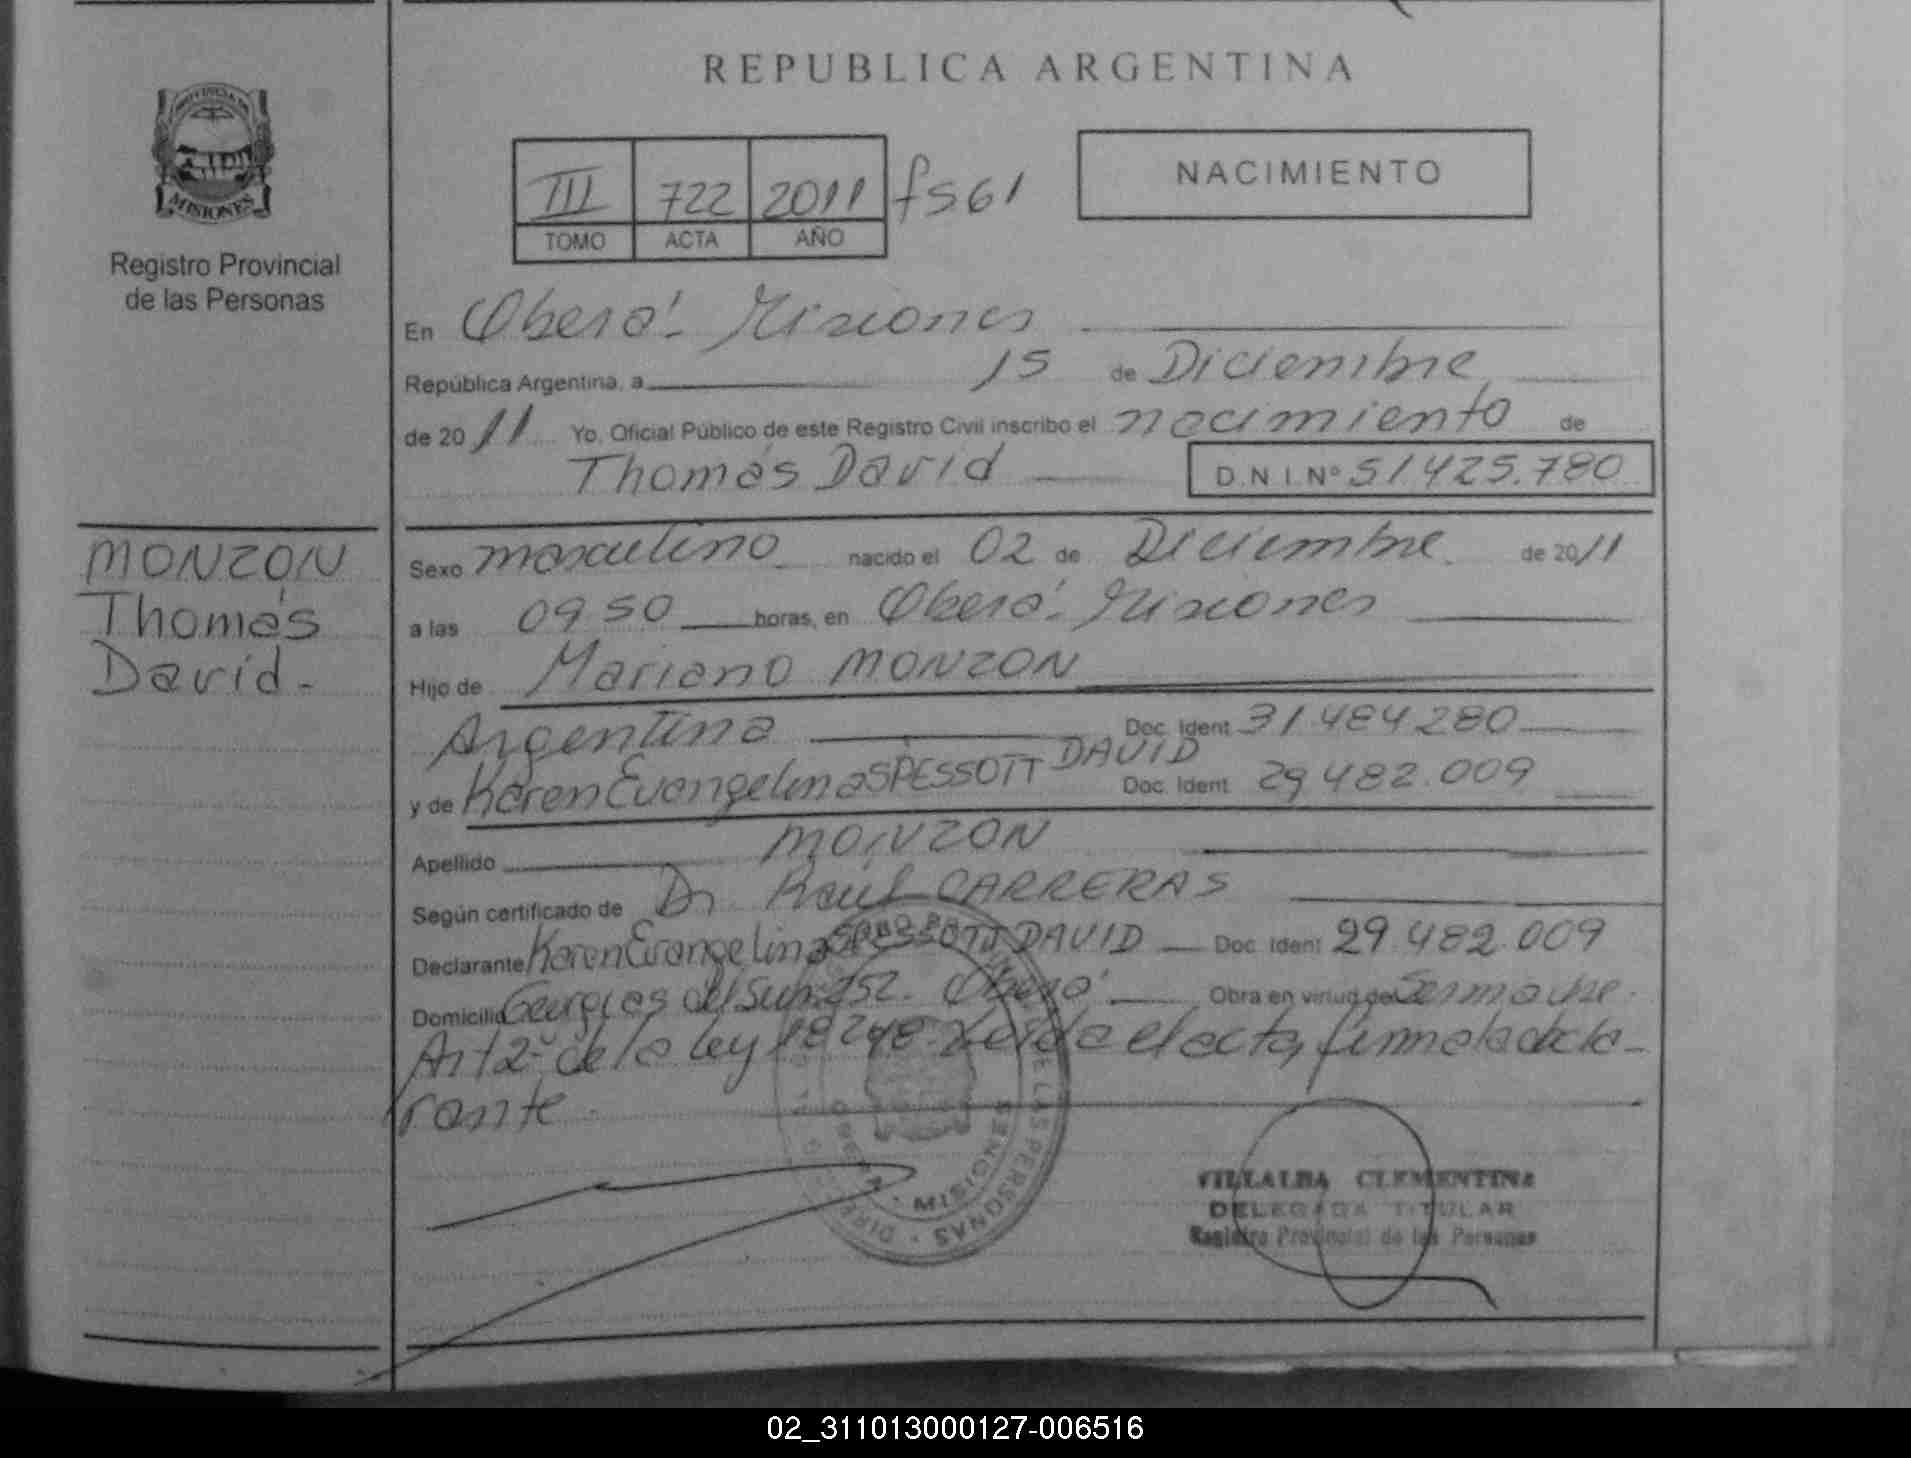 REPUBLICA ARGENTINA
PROVINCIA DE
MISIONES
Registro Provincial
de las Personas
III 722 2011 fs61
TOMO ACTA AÑO
NACIMIENTO
En Oberá - Misiones
República Argentina, a 15 de Diciembre
de 2011 Yo, Oficial Público de este Registro Civil inscribo el nacimiento de
Thomás David D.N.I.Nº 51425.780
MONZON
Thomás
David -
Sexo masculino nacido el 02 de Diciembre de 2011
a las 09 50 horas, en Oberá - Misiones
Hijo de Mariano MONZON
Argentina Doc. Ident 31484280
y de Karen Evangelina SPESSOTT DAVID Doc. Ident 29482.009
Apellido MONZON
Según certificado de Dr Raúl CARRERAS
Declarante Karen Evangelina SPESSOTT DAVID Doc. Ident 29.482.009
Domicilio Georgias del Sur 252. Oberá Obra en virtud de
Art 2º de la ley 18248. Leída el acta, firma la decla-
rante
DE LAS PERSONAS
OBERA - MISIONES
VILLALBA CLEMENTINA
DELEGADA TITULAR
Registro Provincial de las Personas
02_311013000127-006516